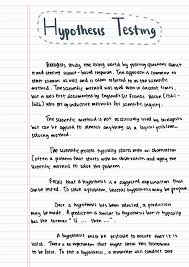 Hypothesis Testing
Biologists study the living world by posing questions about
it and seeking science-based responses. This approach is common to
other sciences as well and is often referred to as the scientific
method. The scientific method was used even in ancient times,
but it was first documented by England's Sir Francis Bacon (1561-
1626) who set up inductive methods for scientific inquiry.
The scientific method is not exclusively used by biologists
but can be applied to almost anything as a logical problem-
solving method.
The scientific process typically starts with an observation
(often a problem that
starts with an observation and
the
scientific method to solve the problem.
Recall that a hypothesis is a suggested explanation that
can be tested. To solve a problem, several hypotheses may be proposed.
Once a hypothesis has been selected, a prediction
may be made. A prediction is similar to hypothesis but it typically
has the format "if ... then ..."
A hypothesis must be testable to ensure that it is
valid.
be false. To test a hypothesis, a researcher will conduct one